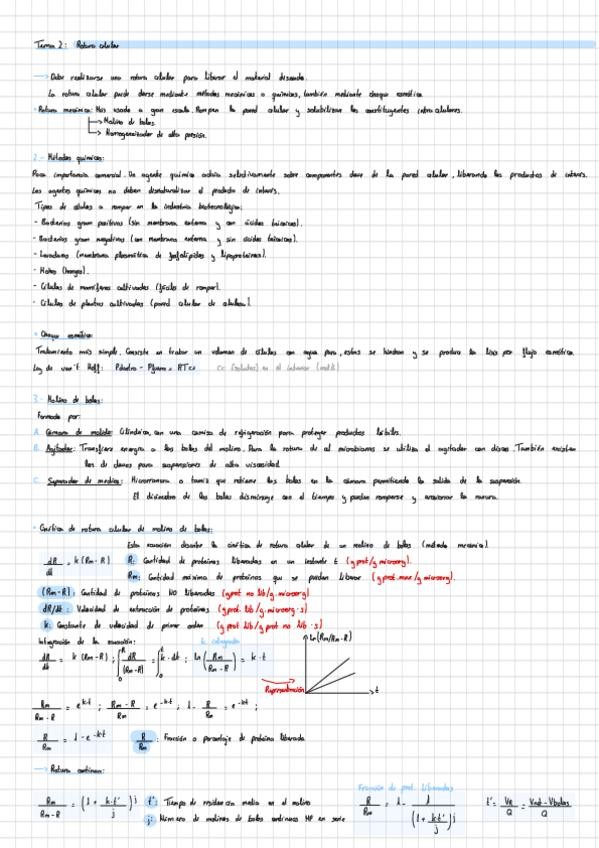 Tema 2: Rotura celular
→ Debe realizarse una rotura celular para liberar el material deseado.
La rotura celular puede darse mediante métodos mecánicos o químicos, también mediante choque osmótico.
• Rotura mecánica: Más usada a gran escala. Rompen la pared celular y solubilizan los constituyentes intracelulares.
→ Molino de bolas.
→ Homogeneizador de alta presión.
2.- Métodos químicos:
Poca importancia comercial. Un agente químico actúa selectivamente sobre componentes clave de la pared celular, liberando los productos de interés.
Los agentes químicos no deben desnaturalizar el producto de interés.
Tipos de células a romper en la industria biotecnológica:
- Bacterias gram positivas (sin membrana externa y con ácidos teicoicos).
- Bacterias gram negativas (con membrana externa y sin ácidos teicoicos).
- Levaduras (membrana plasmática de fosfolípidos y lipoproteínas).
- Mohos (hongos).
- Células de mamíferos cultivadas (fáciles de romper).
- Células de plantas cultivadas (pared celular de celulosa).
• Choque osmótico:
Tratamiento más simple. Consiste en tratar un volumen de células con agua pura, estas se hinchan y se produce la lisis por flujo osmótico.
Ley de van't Hoff: Pdentro - Pfuera = RTcs Cs: (solutos) en el interior (mol/L)
3.- Molino de bolas:
Formado por:
A. Cámara de molido: Cilíndrica, con una camisa de refrigeración para proteger productos lábiles.
B. Agitador: Transfiere energía a las bolas del molino. Para la rotura de microorganismos se utiliza el agitador con discos. También existen
los de danos para suspensiones de alta viscosidad.
C. Separador de medios: Microrranura o tamiz que retiene las bolas en la cámara permitiendo la salida de la suspensión.
El diámetro de las bolas disminuye con el tiempo y pueden romperse y erosionar la ranura.
• Cinética de rotura celular de molino de bolas:
Esta ecuación describe la cinética de rotura celular de un molino de bolas (método mecánico).
dR/dt = k(Rm-R) R: Cantidad de proteínas liberadas en un instante t (g prot/g microorg).
Rm: Cantidad máxima de proteínas que se pueden liberar (g prot. max/g microorg).
(Rm-R): Cantidad de proteínas NO liberadas (g prot no lib/g microorg)
dR/dt: Velocidad de extracción de proteínas (g prot. lib/g. microorg · s)
k: Constante de velocidad de primer orden (g prot lib/g prot no lib · s)
Integración de la ecuación: Ec. integrada
dR/dt = k(Rm-R); ∫₀ᴿ dR/(Rm-R) = ∫₀ᵗ k·dt; ln(Rm/(Rm-R)) = k·t
Ln(Rm/Rm-R)
Representación
t
Rm/(Rm-R) = e^(k·t); (Rm-R)/Rm = e^(-k·t); 1 - R/Rm = e^(-k·t);
R/Rm = 1 - e^(-k·t) R/Rm: Fracción o porcentaje de proteína liberada
→ Rotura continua:
Fracción de prot. liberadas
Rm/(Rm-R) = (1 + k·t'/j)^j t': Tiempo de residencia medio en el molino R/Rm = 1 - 1/(1 + k·t'/j)^j t' = VR/Q = (Vtot - Vbolas)/Q
j: Número de molinos de bolas continuos MP en serie